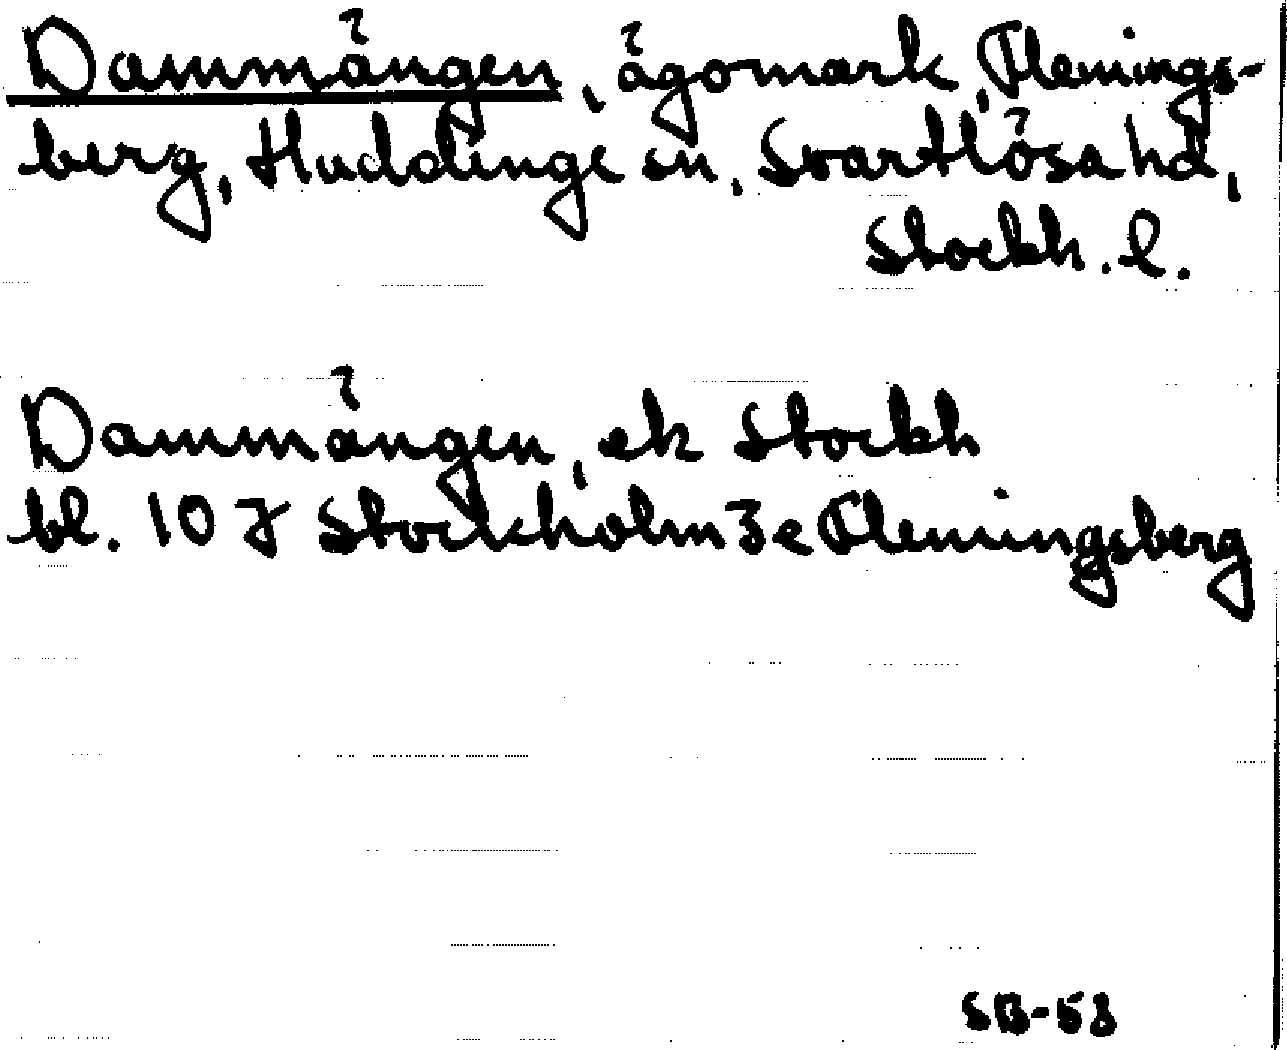 Dammängen, ägomark, Flemings-
berg, Huddinge sn, Svartlösa hd,
Stockh. l.
Dammängen, ek Stockh
bl. 10 J Stockholm 3e Flemingsberg
SB-53